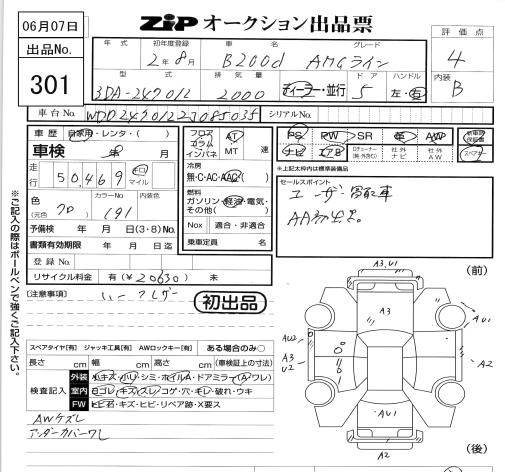 06月07日
出品No.
301
ZIP オークション出品票
年式 初年度登録 車名 グレード
2年8月 B200d AMGライン
型式 排気量 ディーラー・並行 ドア ハンドル
3DA-247012 2000 5 左・右
評価点
4
内装
B
車台No. WDD2470122J085035 シリアルNo.
車歴 自家用・レンタ・( )
車検 年 月
走行 50,469 キロ マイル
色 (元色) クロ カラーNo 191 内装色
予備検 年 月 日(3・8)No.
書類有効期限 年 月 日迄
登録No.
リサイクル料金 有(¥20630) 未
フロア コラム インパネ AT MT 速
冷房
無・C・AC・AAC
燃料
ガソリン・軽油・電気・その他( )
Nox 適合・非適合
乗車定員 名
PS PW SR 革 AW 新車時保証書
ナビ エアB Dチューナー(純・外含む) 社外ナビ 社外AW スペアキー
※上記太枠内は標準装備品
セールスポイント
ユーザー買取車
AA初出品。
(注意事項)
初出品
※ご記入の際はボールペンで強くご記入下さい。
スペアタイヤ[有] ジャッキ工具[有] AWロックキー[有] ある場合のみ○
長さ cm 幅 cm 高さ cm (車検証上の寸法)
検査記入
外装 小キズ・小U・シミ・ホイルA・ドアミラー(A・ワレ)
室内 ヨゴレ・キズ・スレ・コゲ・穴・キレ・破れ・ウキ
FW トビ石・キズ・ヒビ・リペア跡・X要ス
AWケズレ
アンダーカバーワレ
(前)
A3,U1
A3
AU1
AU2
A3
U2
A2
AU1
A2
(後)